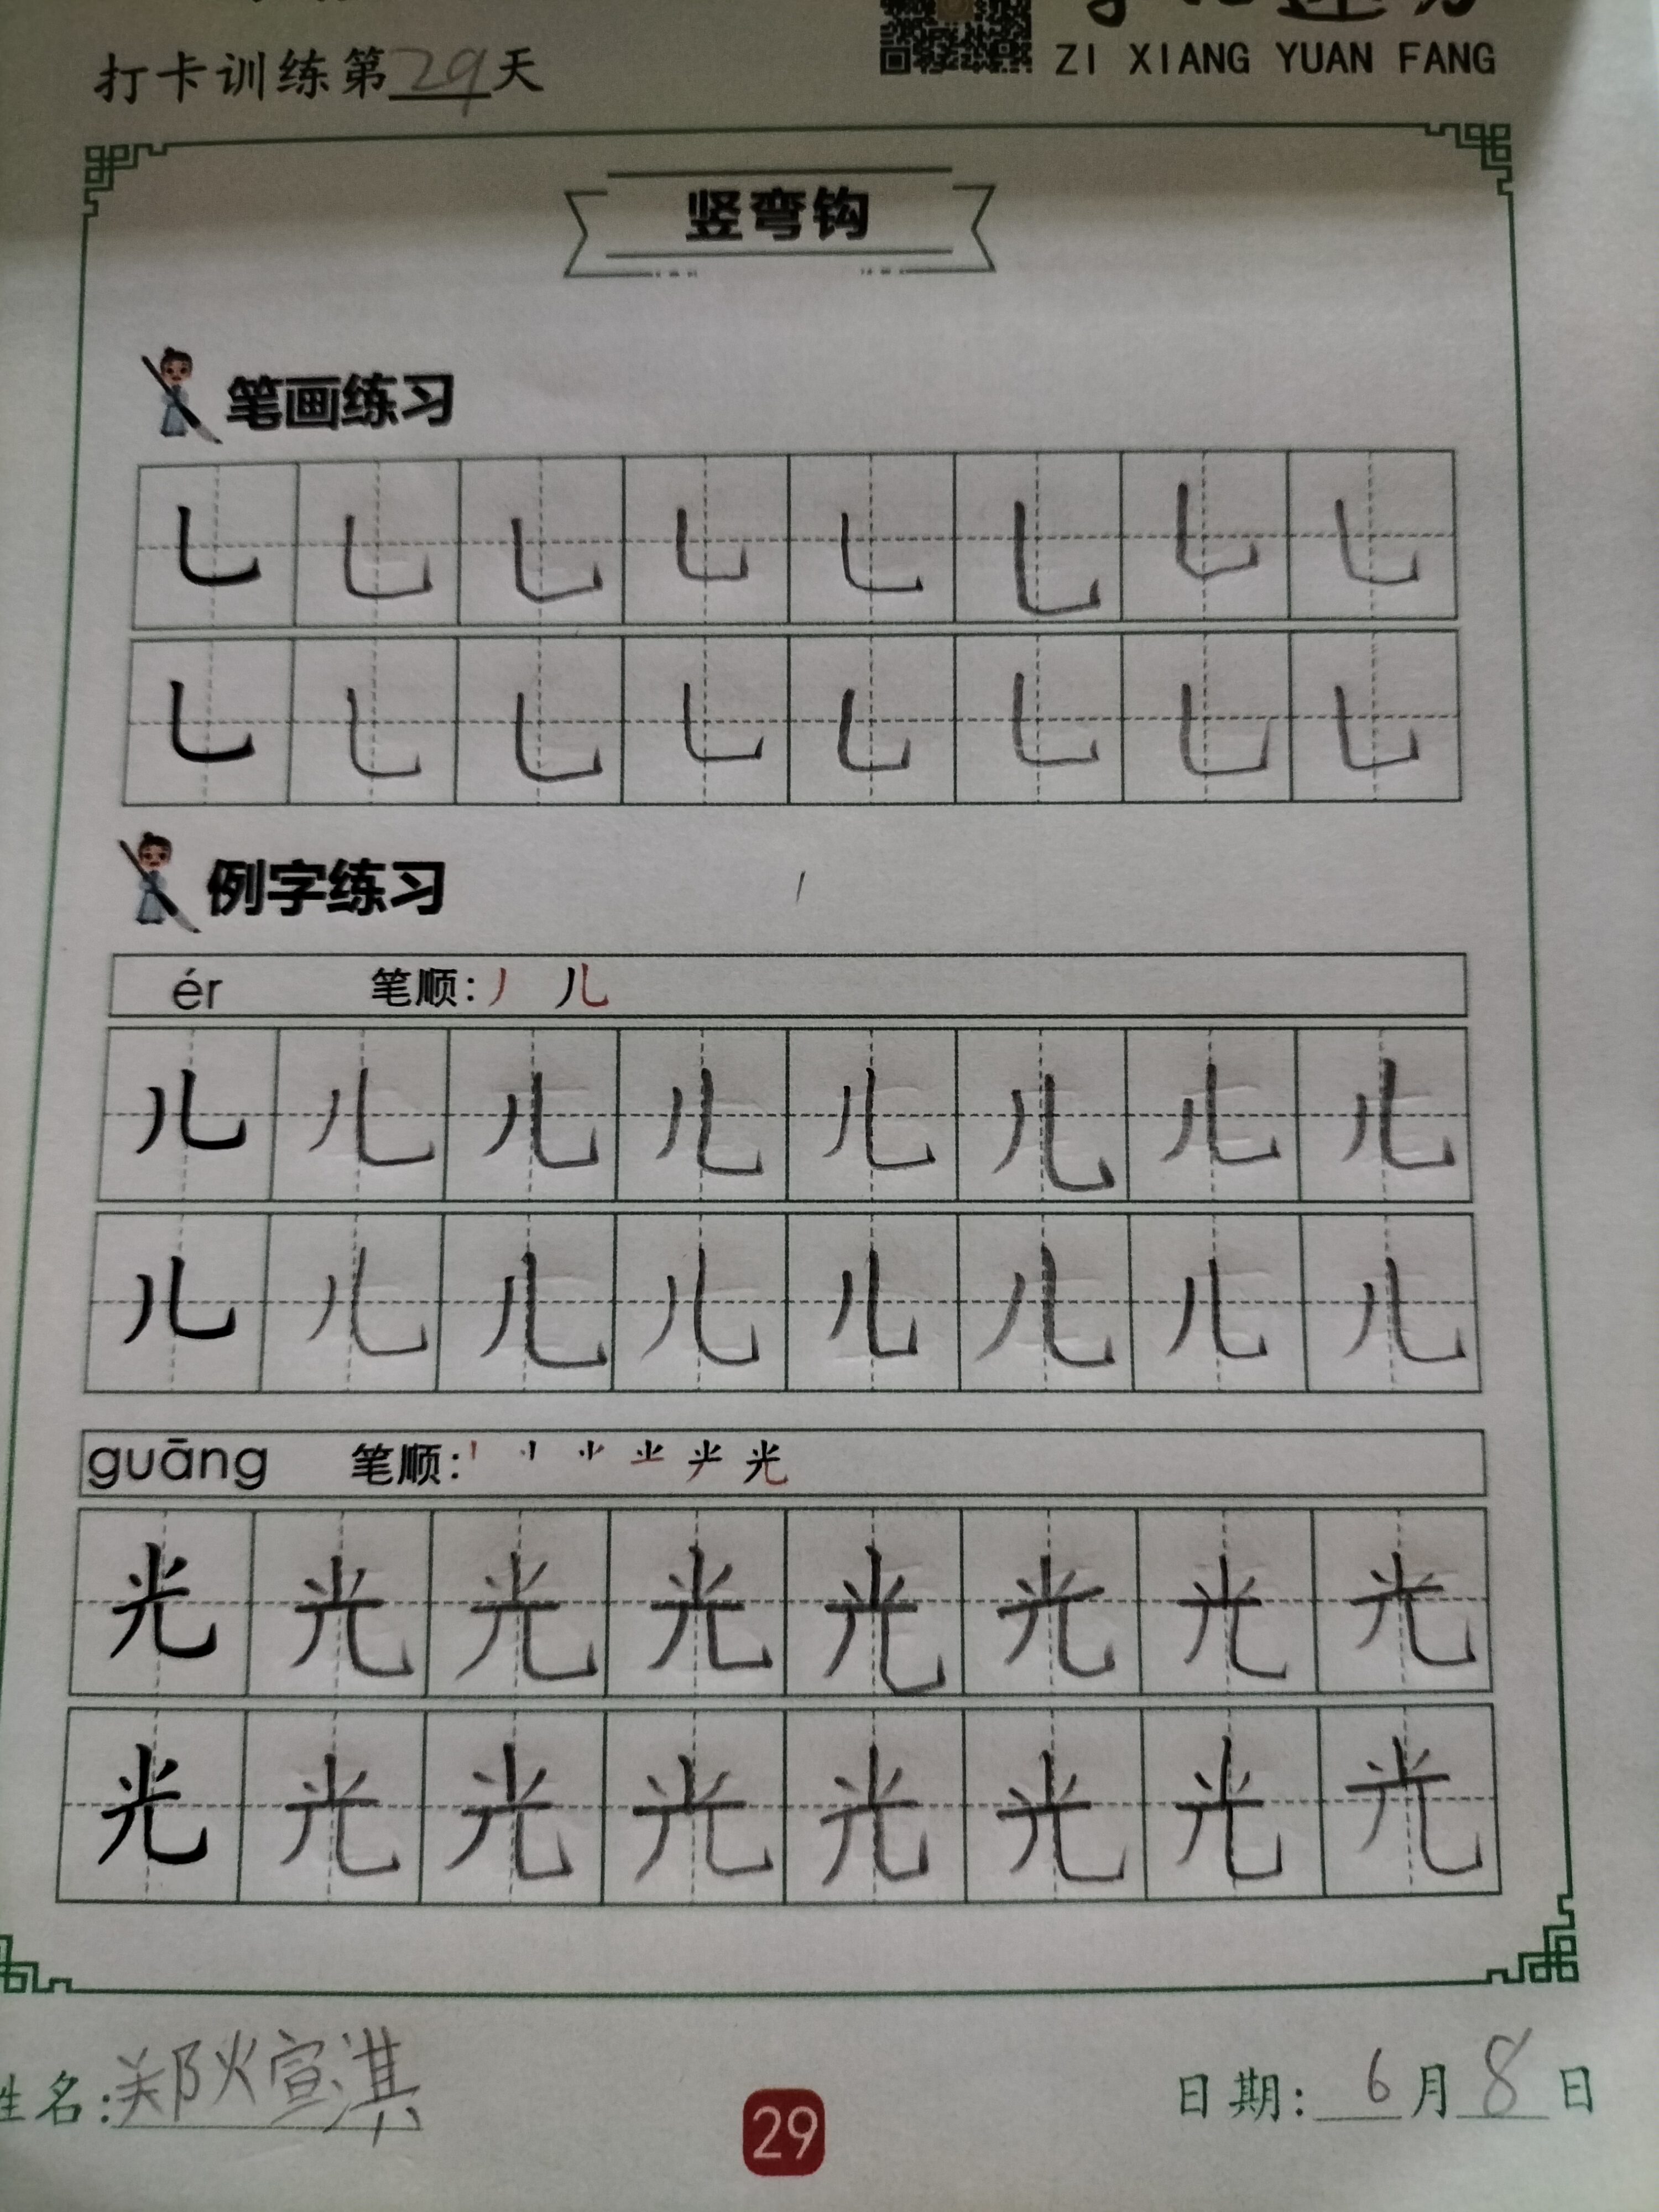 打卡训练第29天
ZI XIANG YUAN FANG
竖弯钩
笔画练习
乚 乚 乚 乚 乚 乚 乚 乚
乚 乚 乚 乚 乚 乚 乚 乚
例字练习
ér 笔顺: 丿 儿
儿 儿 儿 儿 儿 儿 儿 儿
儿 儿 儿 儿 儿 儿 儿 儿
guāng 笔顺: 光
光 光 光 光 光 光 光 光
光 光 光 光 光 光 光 光
姓名:郑煊淇
日期: 6月8日
29